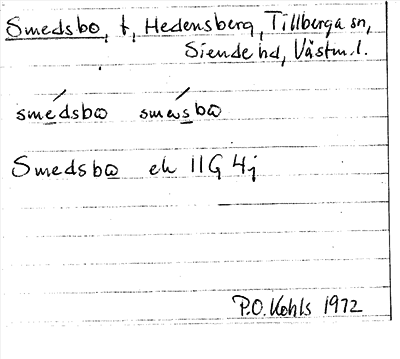 Smedsbo, t, Hedensberg, Tillberga sn,
Siende hd, Västm. l.
smedsbo smesbo
Smedsbo ek 11G 4j
P.O. Kohls 1972